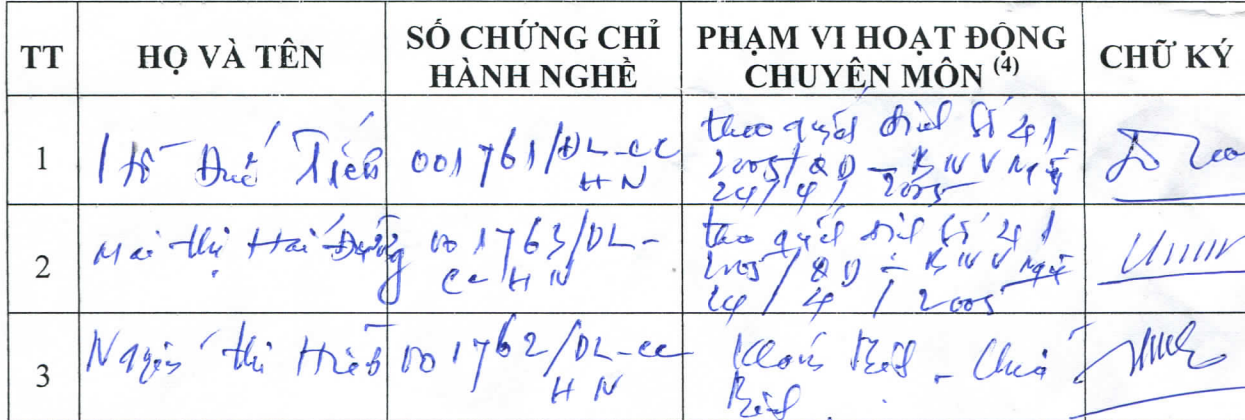 TT HỌ VÀ TÊN SỐ CHỨNG CHỈ HÀNH NGHỀ PHẠM VI HOẠT ĐỘNG CHUYÊN MÔN (4) CHỮ KÝ
1 Hồ Đức Tiến 001761/DL-CC
HN
theo quyết định số 41
2005/QĐ - BNV Ngày
24/4/2005
2 Mai thị Hải Đường 001763/DL-
CC HN
theo quyết định số 41
2005/QĐ - BNV Ngày
24/4/2005
3 Nguyễn thị Hiền 001762/DL-CC
HN
Khám bệnh - Chữa
bệnh